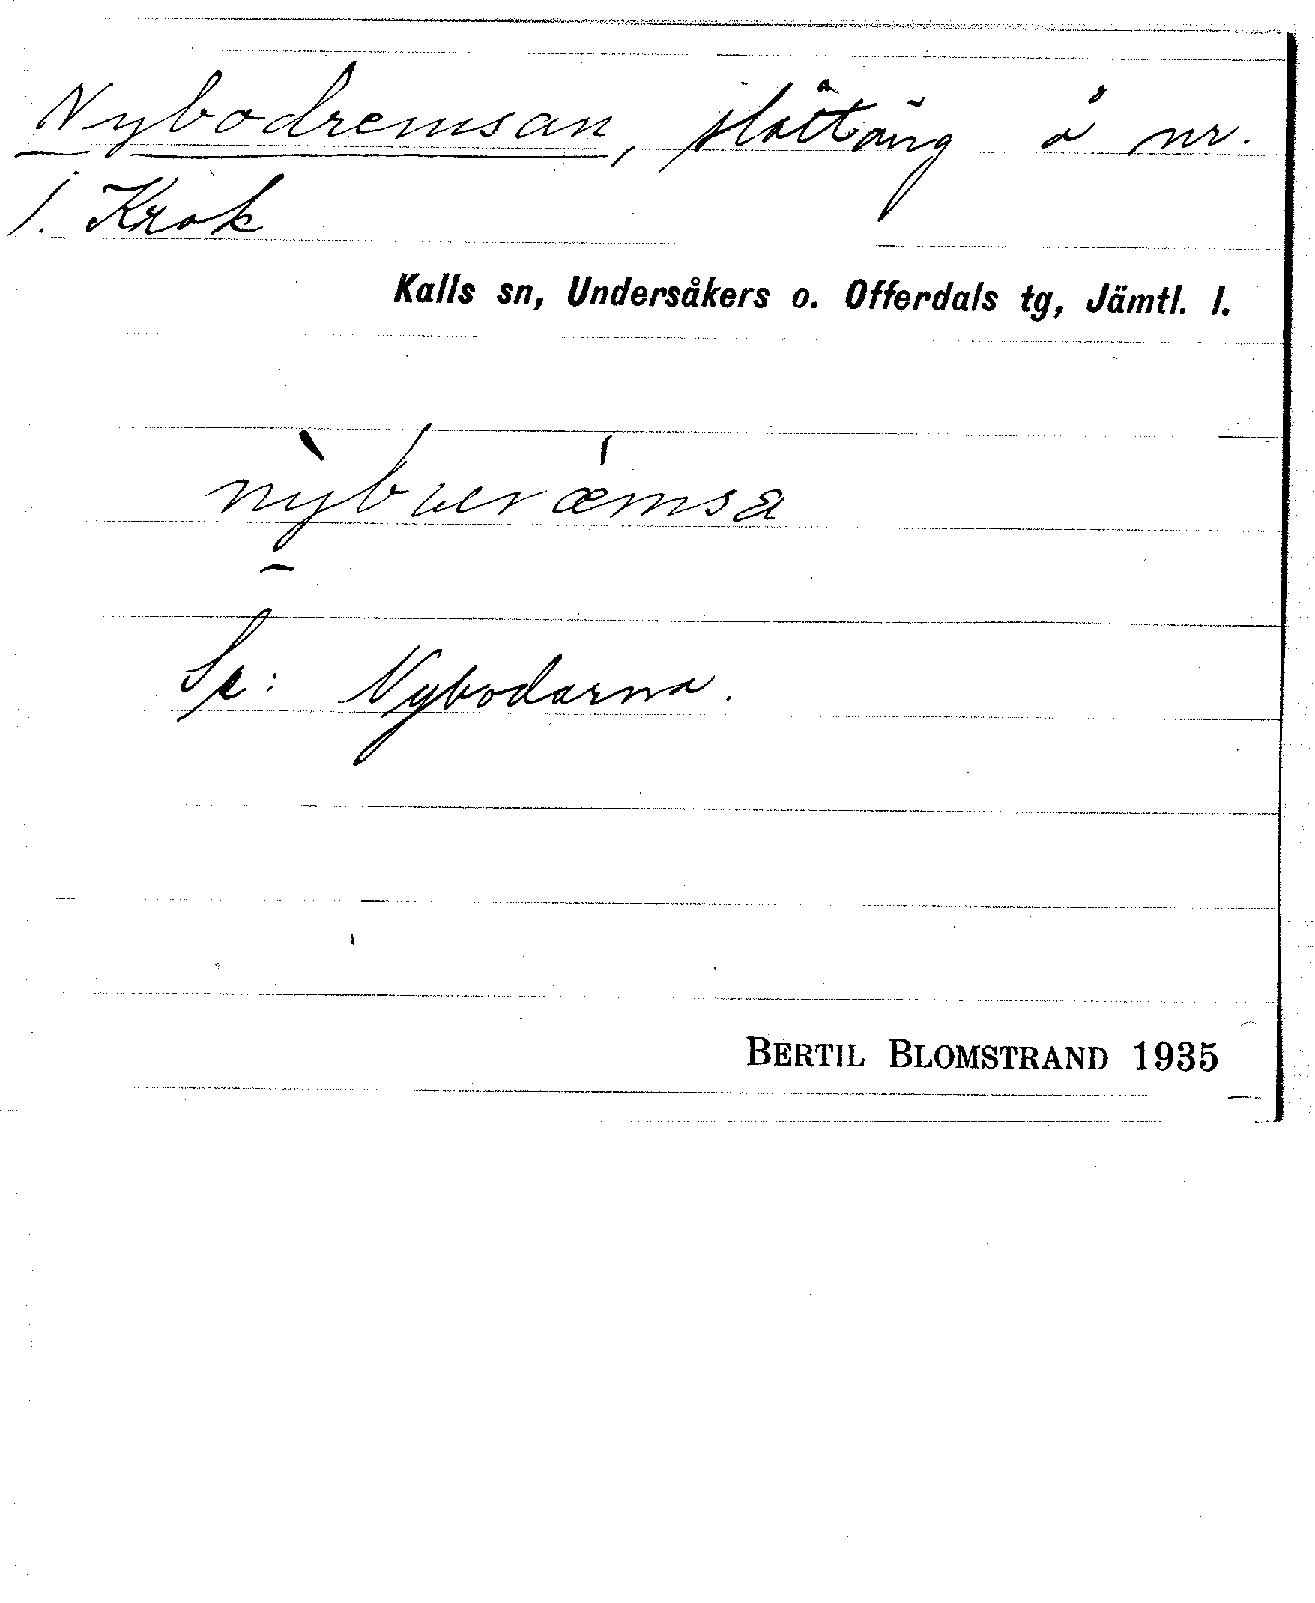 Nybodremsan, slåttäng å nr.
1. Krok
Kalls sn, Undersåkers o. Offerdals tg, Jämtl. l.
Se: Nybodarna.
BERTIL BLOMSTRAND 1935